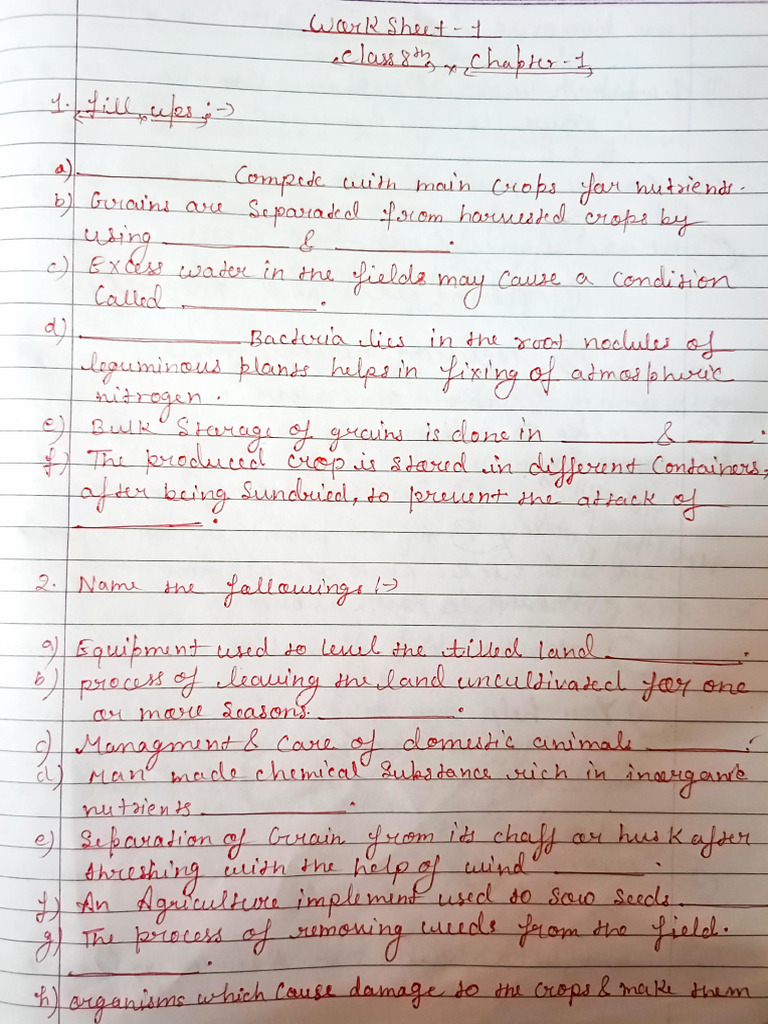 Work Sheet - 1
Class 8th, Chapter - 1
1. Fill ups :->
a) __________ Compete with main crops for nutrients.
b) Grains are Separated from harvested crops by
using __________ & __________.
c) Excess water in the fields may cause a condition
Called __________.
d) __________ Bacteria lies in the root nodules of
leguminous plants helps in fixing of atmospheric
nitrogen.
e) Bulk Storage of grains is done in ______ & ______.
f) The produced crop is stored in different Containers,
after being Sundried, to prevent the attack of
__________.
2. Name the followings :->
a) Equipment used to level the tilled land __________.
b) process of leaving the land uncultivated for one
or more seasons. __________.
c) Managment & Care of domestic animals __________.
d) Man made chemical Substance rich in inorganic
nutrients __________.
e) Separation of Grain from its chaff or husk after
threshing with the help of wind __________.
f) An Agriculture implement used to sow seeds ______
g) The process of removing weeds from the field.
__________.
h) organisms which cause damage to the crops & make them